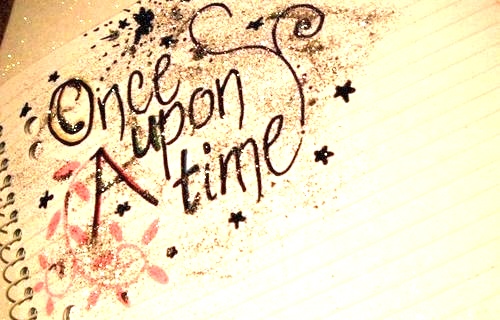 Once
upon
A
time